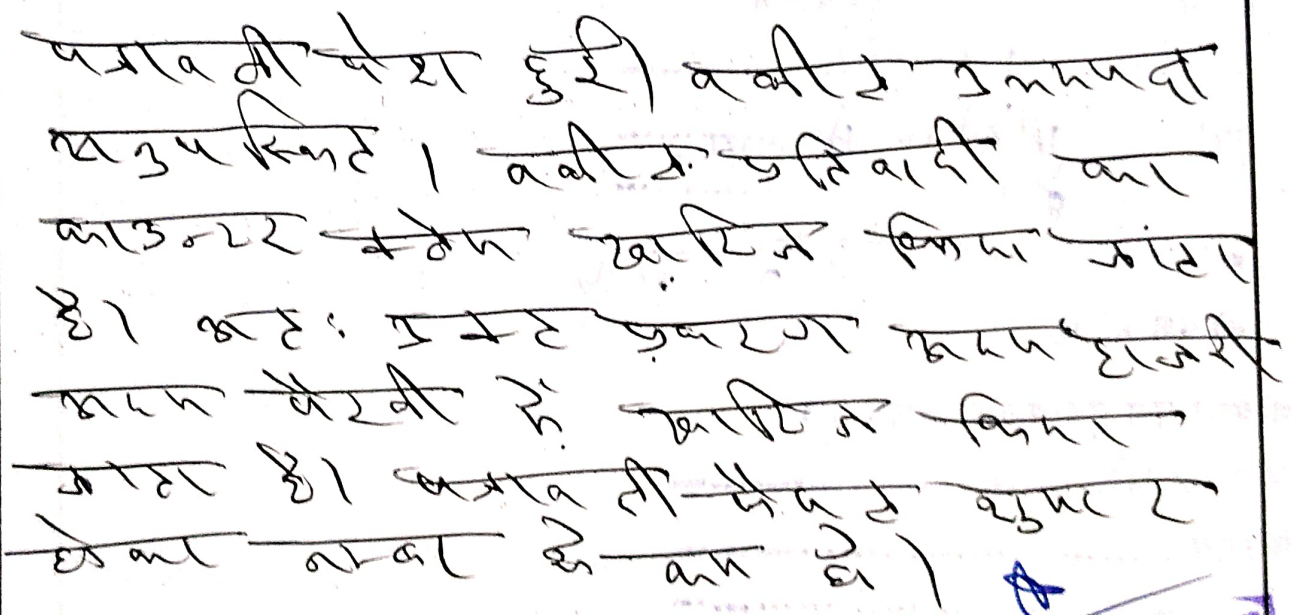 पत्रावली पेश हुई। वकील उभयपक्ष
अनुपस्थित। वकील प्रतिवादी का
काउन्टर क्लेम खारिज किया जाता
है। अतः उक्त प्रकरण अदम हाजरी
अदम पैरवी में खारिज किया
जाता है। पत्रावली फैसल शुमार
होकर नम्बर से कम हो।